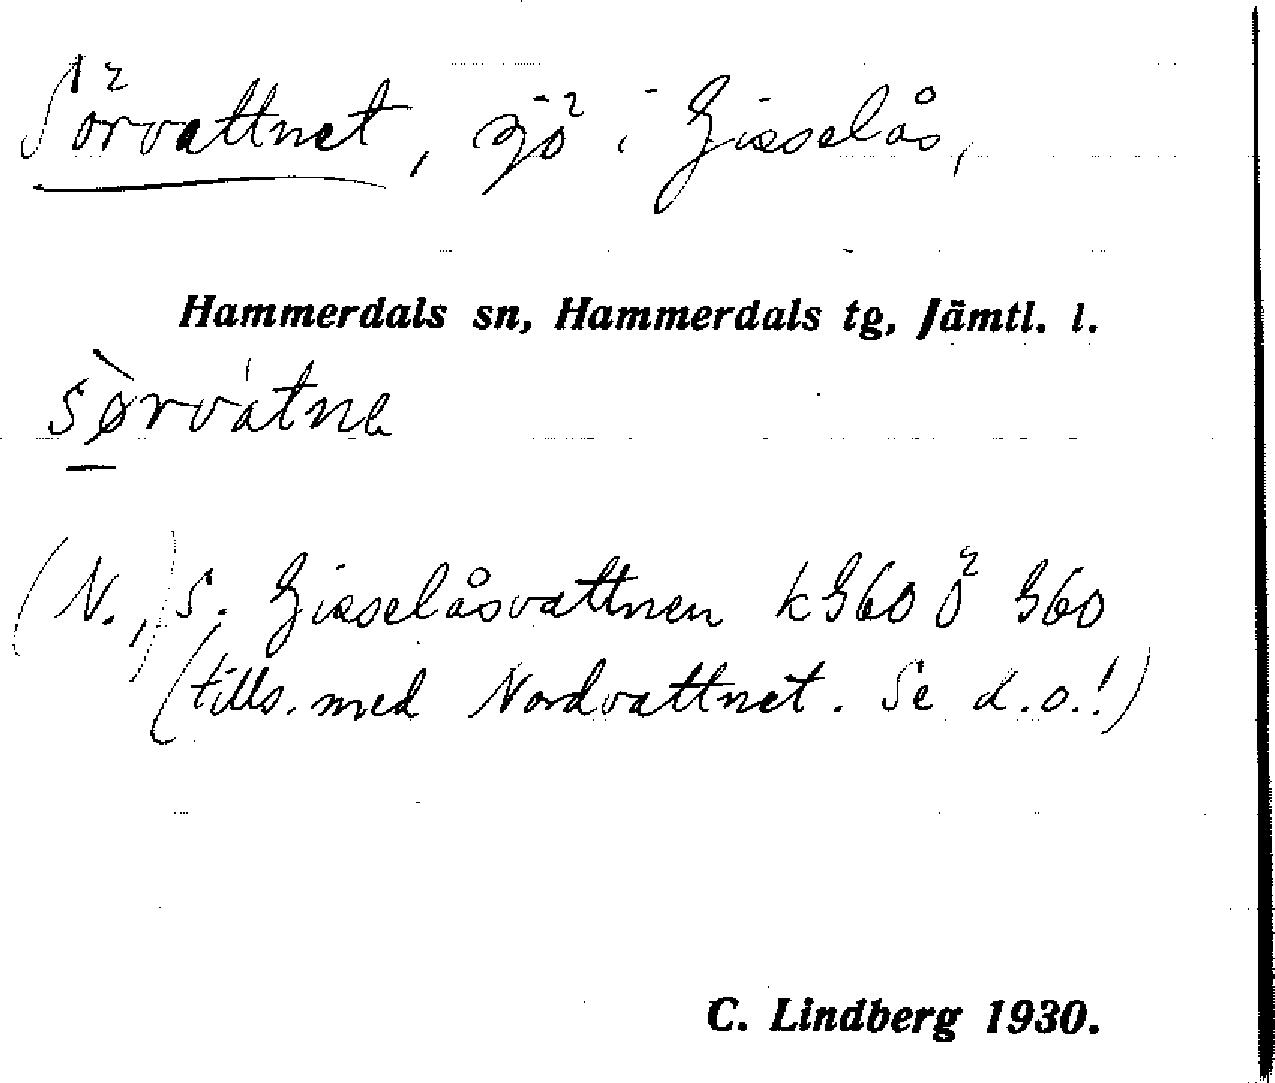 Sörvattnet, sjö i Gisselås,
Hammerdals sn, Hammerdals tg, Jämtl. l.
sø̀rvátnə
(N.,) S. Gisselåsvattnen kG60 ö G60
(tills. med Nordvattnet. Se d.o.!)
C. Lindberg 1930.